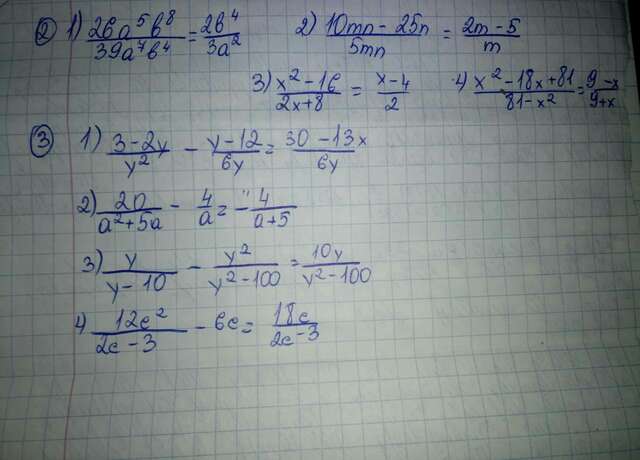 ② 1) 26a⁵b⁸/39a⁷b⁴ = 2b⁴/3a² 2) 10mn - 25n/5mn = 2m - 5/m
3) x² - 16/2x + 8 = x - 4/2 4) x² - 18x + 81/81 - x² = 9 - x/9 + x
③ 1) 3 - 2y/y² - y - 12/6y = 30 - 13x/6y
2) 20/a² + 5a - 4/a = - 4/a + 5
3) y/y - 10 - y²/y² - 100 = 10y/y² - 100
4) 12c²/2c - 3 - 6c = 18c/2c - 3